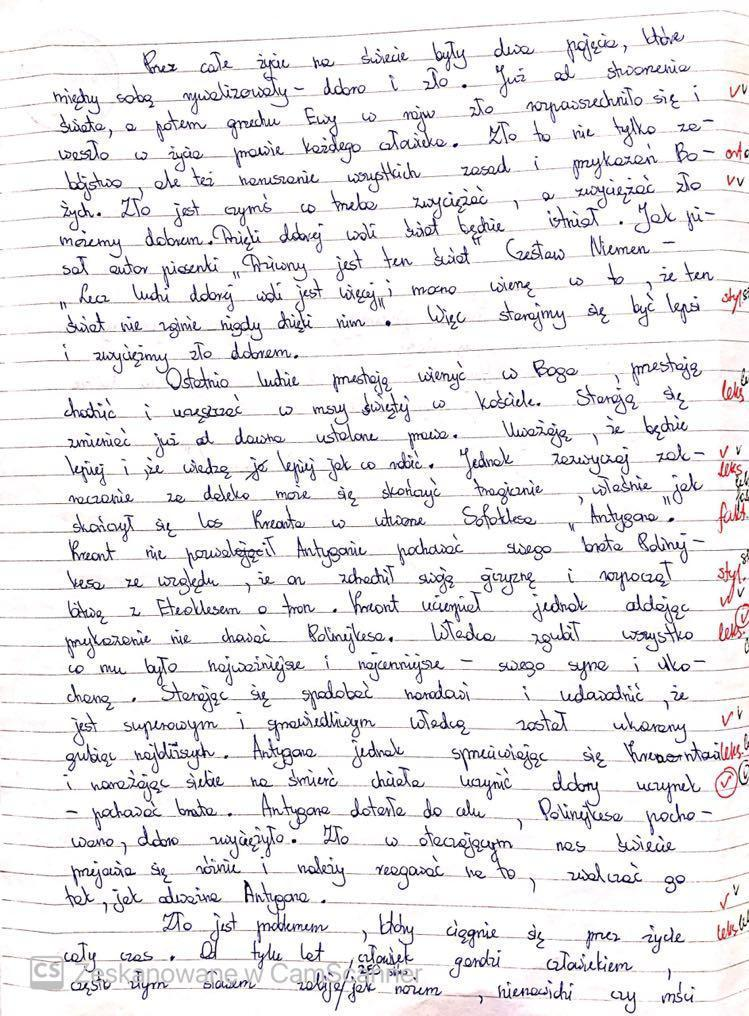 Przez całe życie na świecie były dwa pojęcia, które
między sobą rywalizowały - dobro i zło. Już od stworzenia
świata, a potem grzechu Ewy w raju zło rozpowszechniło się i
weszło w życie prawie każdego człowieka. Zło to nie tylko za-
bójstwo, ale też naruszanie wszystkich zasad i przykazań Bo-
żych. Zło jest czymś co trzeba zwyciężać, a zwyciężać zło
możemy dobrem. Dzięki dobrej woli świat będzie istniał. Jak pi-
sał autor piosenki „Dziwny jest ten świat" Czesław Niemen -
„Lecz ludzi dobrej woli jest więcej" i mocno wierzę w to, że ten
świat nie zginie nigdy dzięki nim. Więc starajmy się być lepsi
i zwyciężmy zło dobrem.
Ostatnio ludzie przestają wierzyć w Boga, przestają
chodzić i uczęszczać w mszy świętej w kościele. Starają się
zmieniać już od dawna ustalone prawa. Uważają, że będzie
lepiej i, że wiedzą lepiej jak co robić. Jednak zazwyczaj zak-
raczanie za daleko może się skończyć tragicznie, właśnie jak
skończył się los Kreonta w utworze Sofoklesa „Antygona".
Kreont nie pozwolił Antygonie pochować swego brata Polinej-
kesa ze względu, że on zdradził swoją ojczyznę i rozpoczął
bitwę z Eteoklesem o tron. Kreont ucierpiał jednak oddając
przykazanie nie chować Polinejkesa. Władca zgubił wszystko
co mu było najważniejsze i najcenniejsze - swego syna i uko-
chaną. Starając się spodobać narodowi i udowodnić, że
jest superowym i sprawiedliwym władcą został ukarany
gubiąc najbliższych. Antygona jednak sprzeciwiając się Kreontowi
i narażając siebie na śmierć chciała uczynić dobry uczynek
- pochować brata. Antygona dotarła do celu, Polinejkesa pocho-
wano, dobro zwyciężyło. Zło w otaczającym nas świecie
przejawia się różnie i należy reagować na to, zwalczać go
tak, jak odważna Antygona.
Zło jest problemem, który ciągnie się przez życie
cały czas. Od tylu lat, człowiek gardzi człowiekiem,
często złym słowem zabija jak nożem, nienawidzi czy mści
250 słów
vv
orto
vv
styl.
leks
vv
leks
fakt.
styl.
vv
leks.
vv
leks
v
vv
leks
CS Zeskanowane w CamScanner